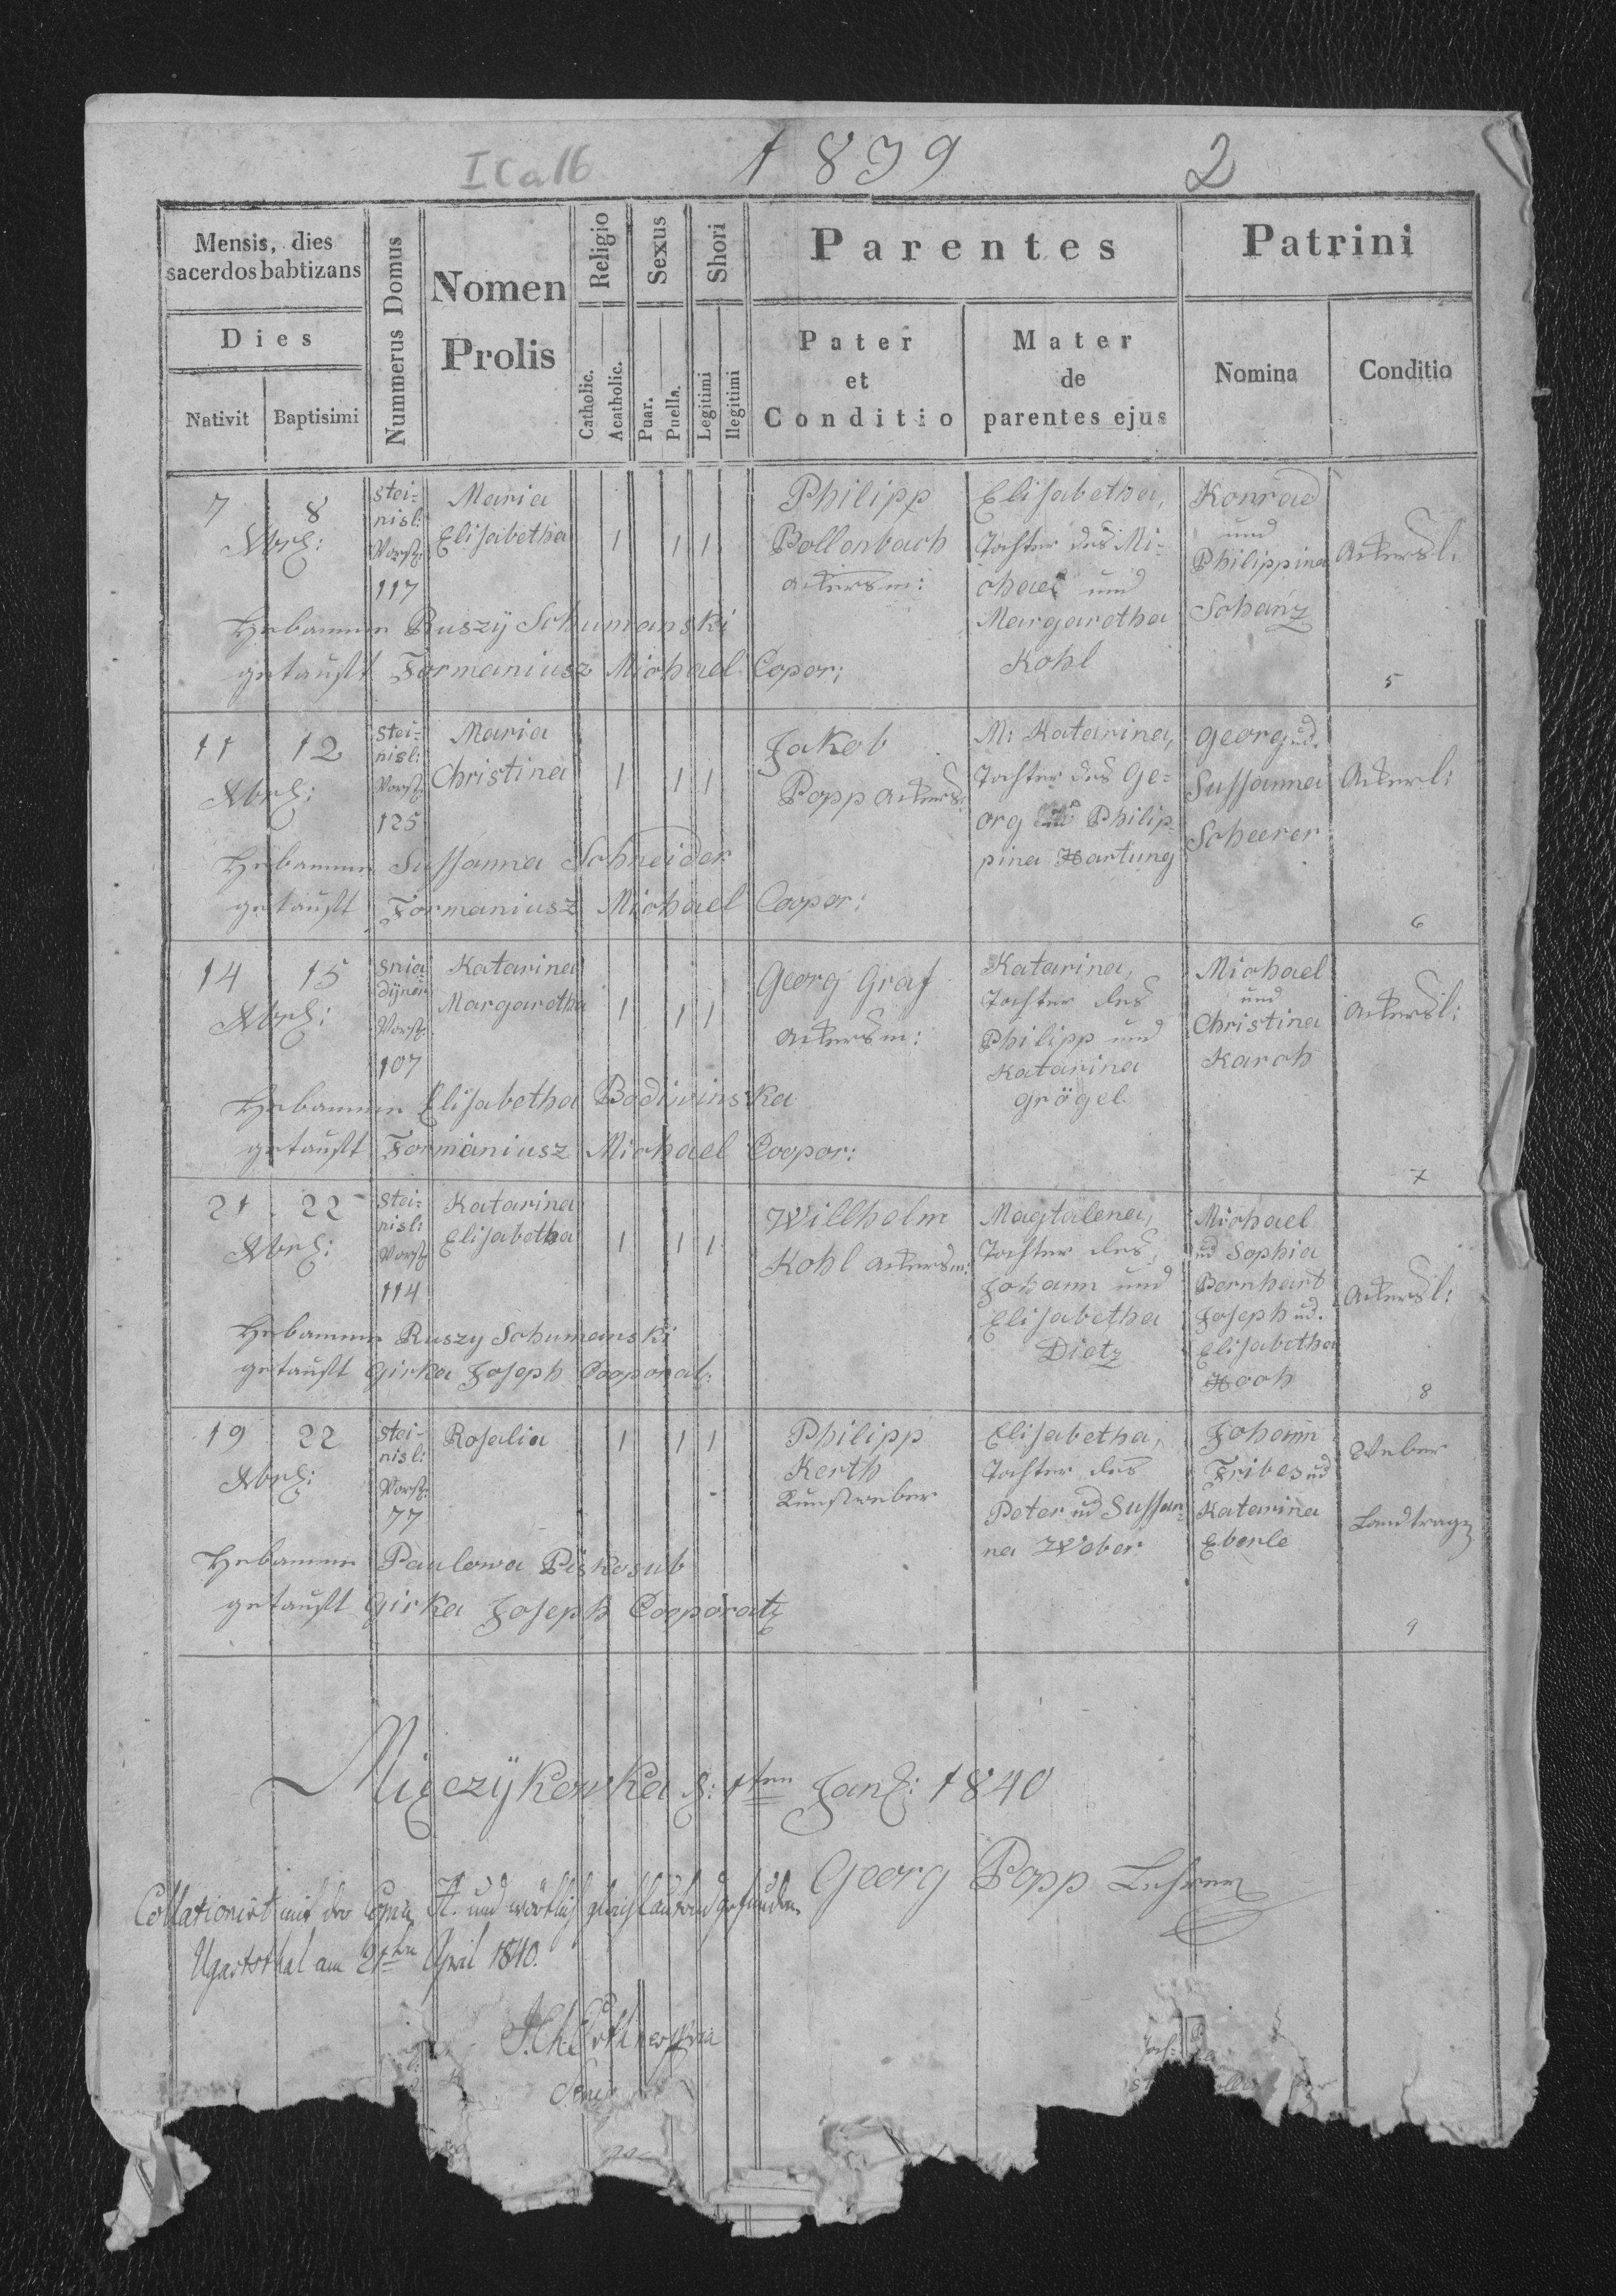 ICa16 1839 2
Mensis, dies sacerdos babtizans
Dies
Nativit Baptisimi
Nummerus Domus
Nomen Prolis
Religio
Catholic. Acatholic.
Sexus
Puar. Puella.
Shori
Legitimi Ilegitimi
Parentes
Pater et Conditio
Mater de parentes ejus
Patrini
Nomina Conditio
7 8
stei=
nisl:
Vorst:
117
Maria
Elisabetha
1 1 1
Philipp
Bollenbach
Akersm:
Elisabetha,
Tochter des Mi=
chael und
Margaretha
Kohl
Konrad
und
Philippina
Schanz
Akersl:
Hebamme Ruszÿ Schumanski
getauft Formaniusz Michael Copor:
5
11 12
stei=
nisl:
Vorst:
125
Maria
Christina
1 1 1
Jakob
Popp Akers:
M: Katarina,
Tochter des Ge=
org und Philip=
pina Hartung
Georg ud.
Sussanna
Scheerer
Akerl:
Hebamme Sussanna Schneider
getauft Formaniusz Michael Copor:
6
14 15
snia
dÿner
Vorst:
107
Katarina
Margaretha
1 1 1
Georg Graf
Akersm:
Katarina,
Tochter des
Philipp und
Katarina
Grögel
Michael
und
Christina
Karch
Akersl:
Hebamme Elisabetha
getauft Formaniusz Michael Coopor:
7
21 22
stei=
nisl:
Vorst:
114
Katarina
Elisabetha
1 1 1
Willhelm
Kohl Akersm:
Magtalena,
Tochter des
Johann und
Elisabetha
Dietz
Michael
ud Sophia
Bernhart
Joseph ud.
Elisabetha
Koch
Akersl:
Hebamme Ruszy Schumanski
getauft Girka Joseph Cooporat:
8
19 22
stei=
nisl:
Vorst:
77
Rosalia
1 1 1
Philipp
Kerth
Kunstweber
Elisabetha,
Tochter des
Peter ud Sussan=
na Weber
Johann
Fribes ud
Katarina
Eberle
Weber
Hebamme Paulowa
getauft Girka Joseph Cooporat:
9
d: 1ten Jan: 1840
Georg Popp Lehrer
Collationirt mit der und wörtlich gleichlautend gefunden
Ugartsthal am 21ten April 1840.